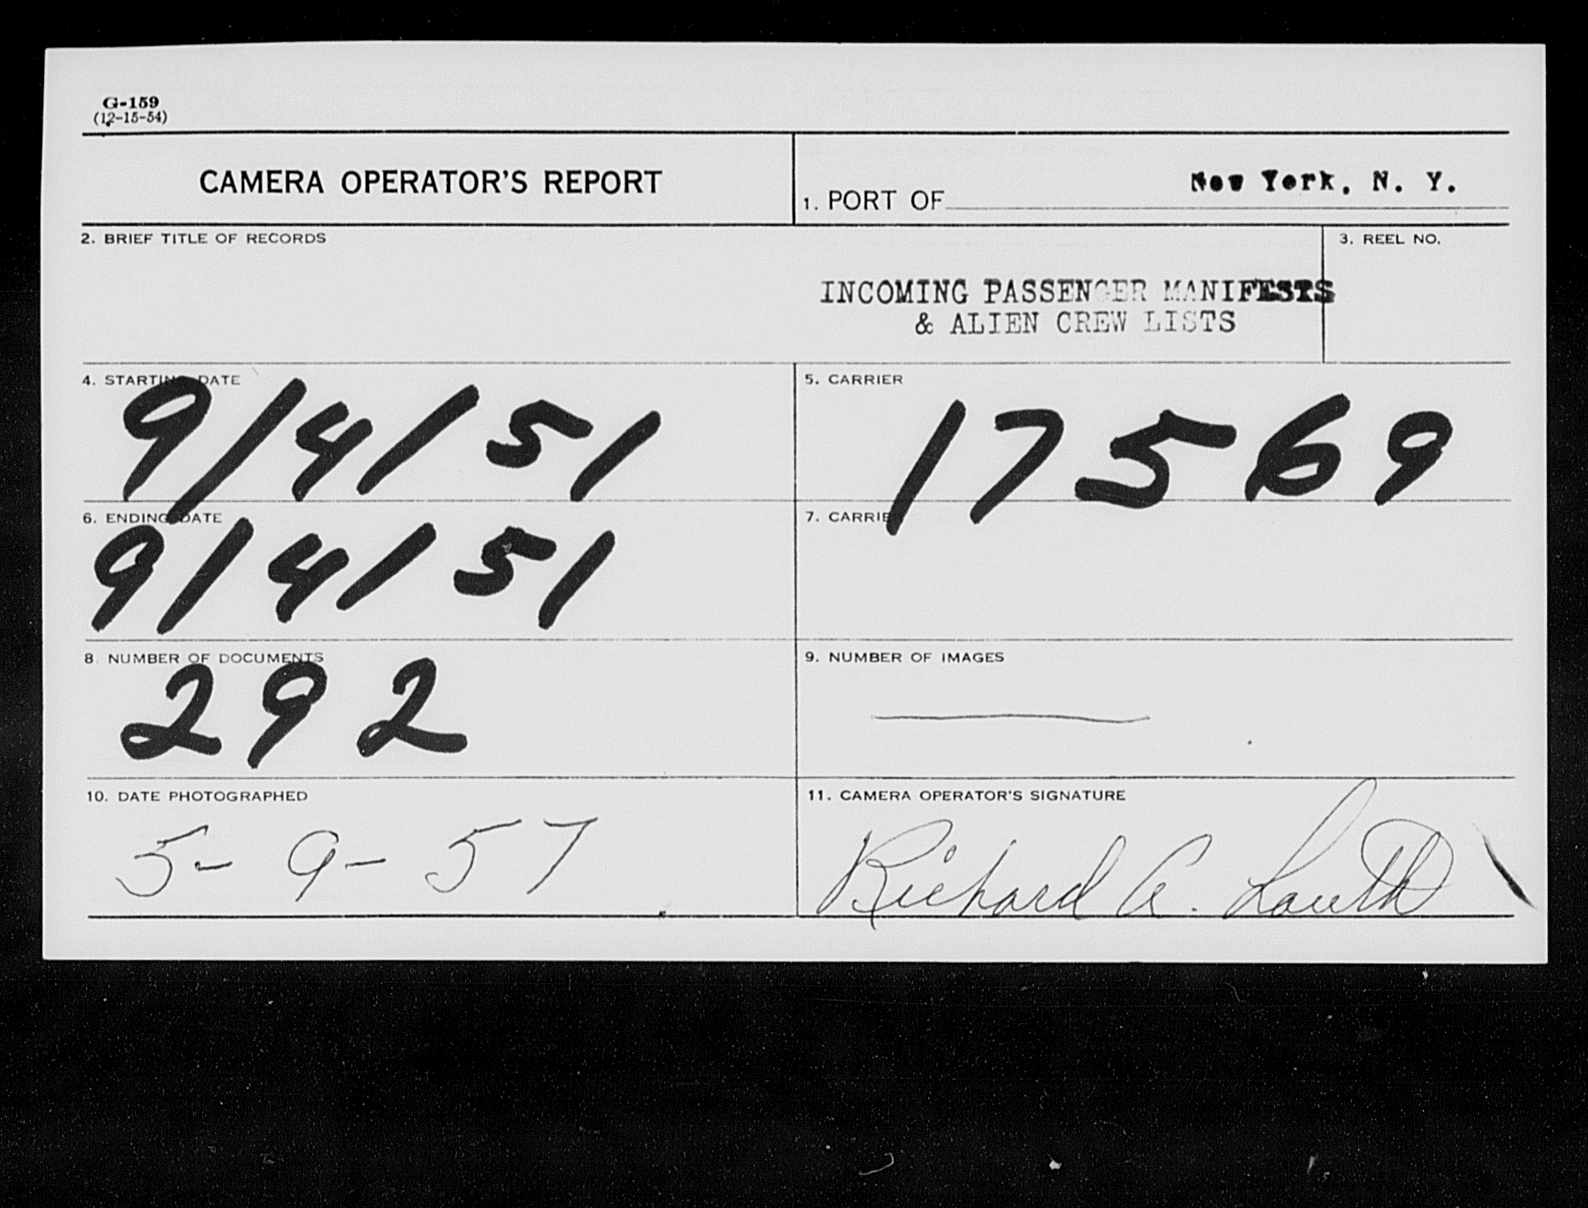 G-159
(12-15-54)
CAMERA OPERATOR'S REPORT
1. PORT OF New York, N. Y.
2. BRIEF TITLE OF RECORDS
3. REEL NO.
INCOMING PASSENGER MANIFESTS
& ALIEN CREW LISTS
4. STARTING DATE
9/4/51
5. CARRIER
17569
6. ENDING DATE
9/4/51
7. CARRIER
8. NUMBER OF DOCUMENTS
292
9. NUMBER OF IMAGES
10. DATE PHOTOGRAPHED
5-9-57
11. CAMERA OPERATOR'S SIGNATURE
Richard A.